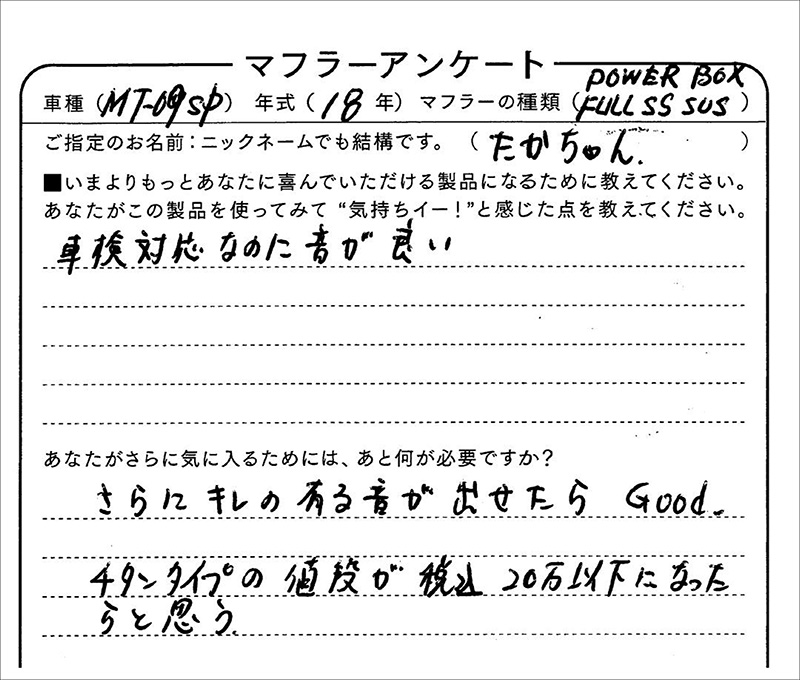 マフラーアンケート
車種（MT-09SP） 年式（18年） マフラーの種類（POWER BOX FULL SS SUS）
ご指定のお名前：ニックネームでも結構です。（たかちゃん.）
■いまよりもっとあなたに喜んでいただける製品になるために教えてください。
あなたがこの製品を使ってみて“気持ちイー！”と感じた点を教えてください。
車検対応なのに音が良い
あなたがさらに気に入るためには、あと何が必要ですか？
さらにキレの有る音が出せたら Good.
チタンタイプの値段が税込20万以下になった
らと思う.